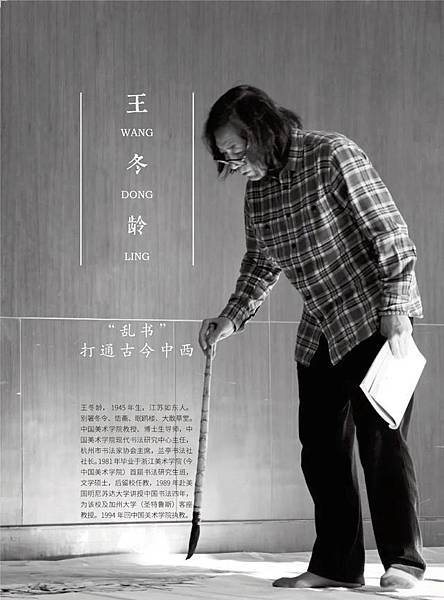 王
WANG
冬
DONG
龄
LING
“乱书”
打通古今中西
王冬龄，1945年生，江苏如东人。
别署冬令、悟斋、眠鸥楼、大散草堂。
中国美术学院教授、博士生导师，中
国美术学院现代书法研究中心主任，
杭州市书法家协会主席，兰亭书法社
社长。1981年毕业于浙江美术学院（今
中国美术学院）首届书法研究生班，
文学硕士，后留校任教，1989年赴美
国明尼苏达大学讲授中国书法四年，
为该校及加州大学（圣特鲁斯）客座
教授。1994年回中国美术学院执教。